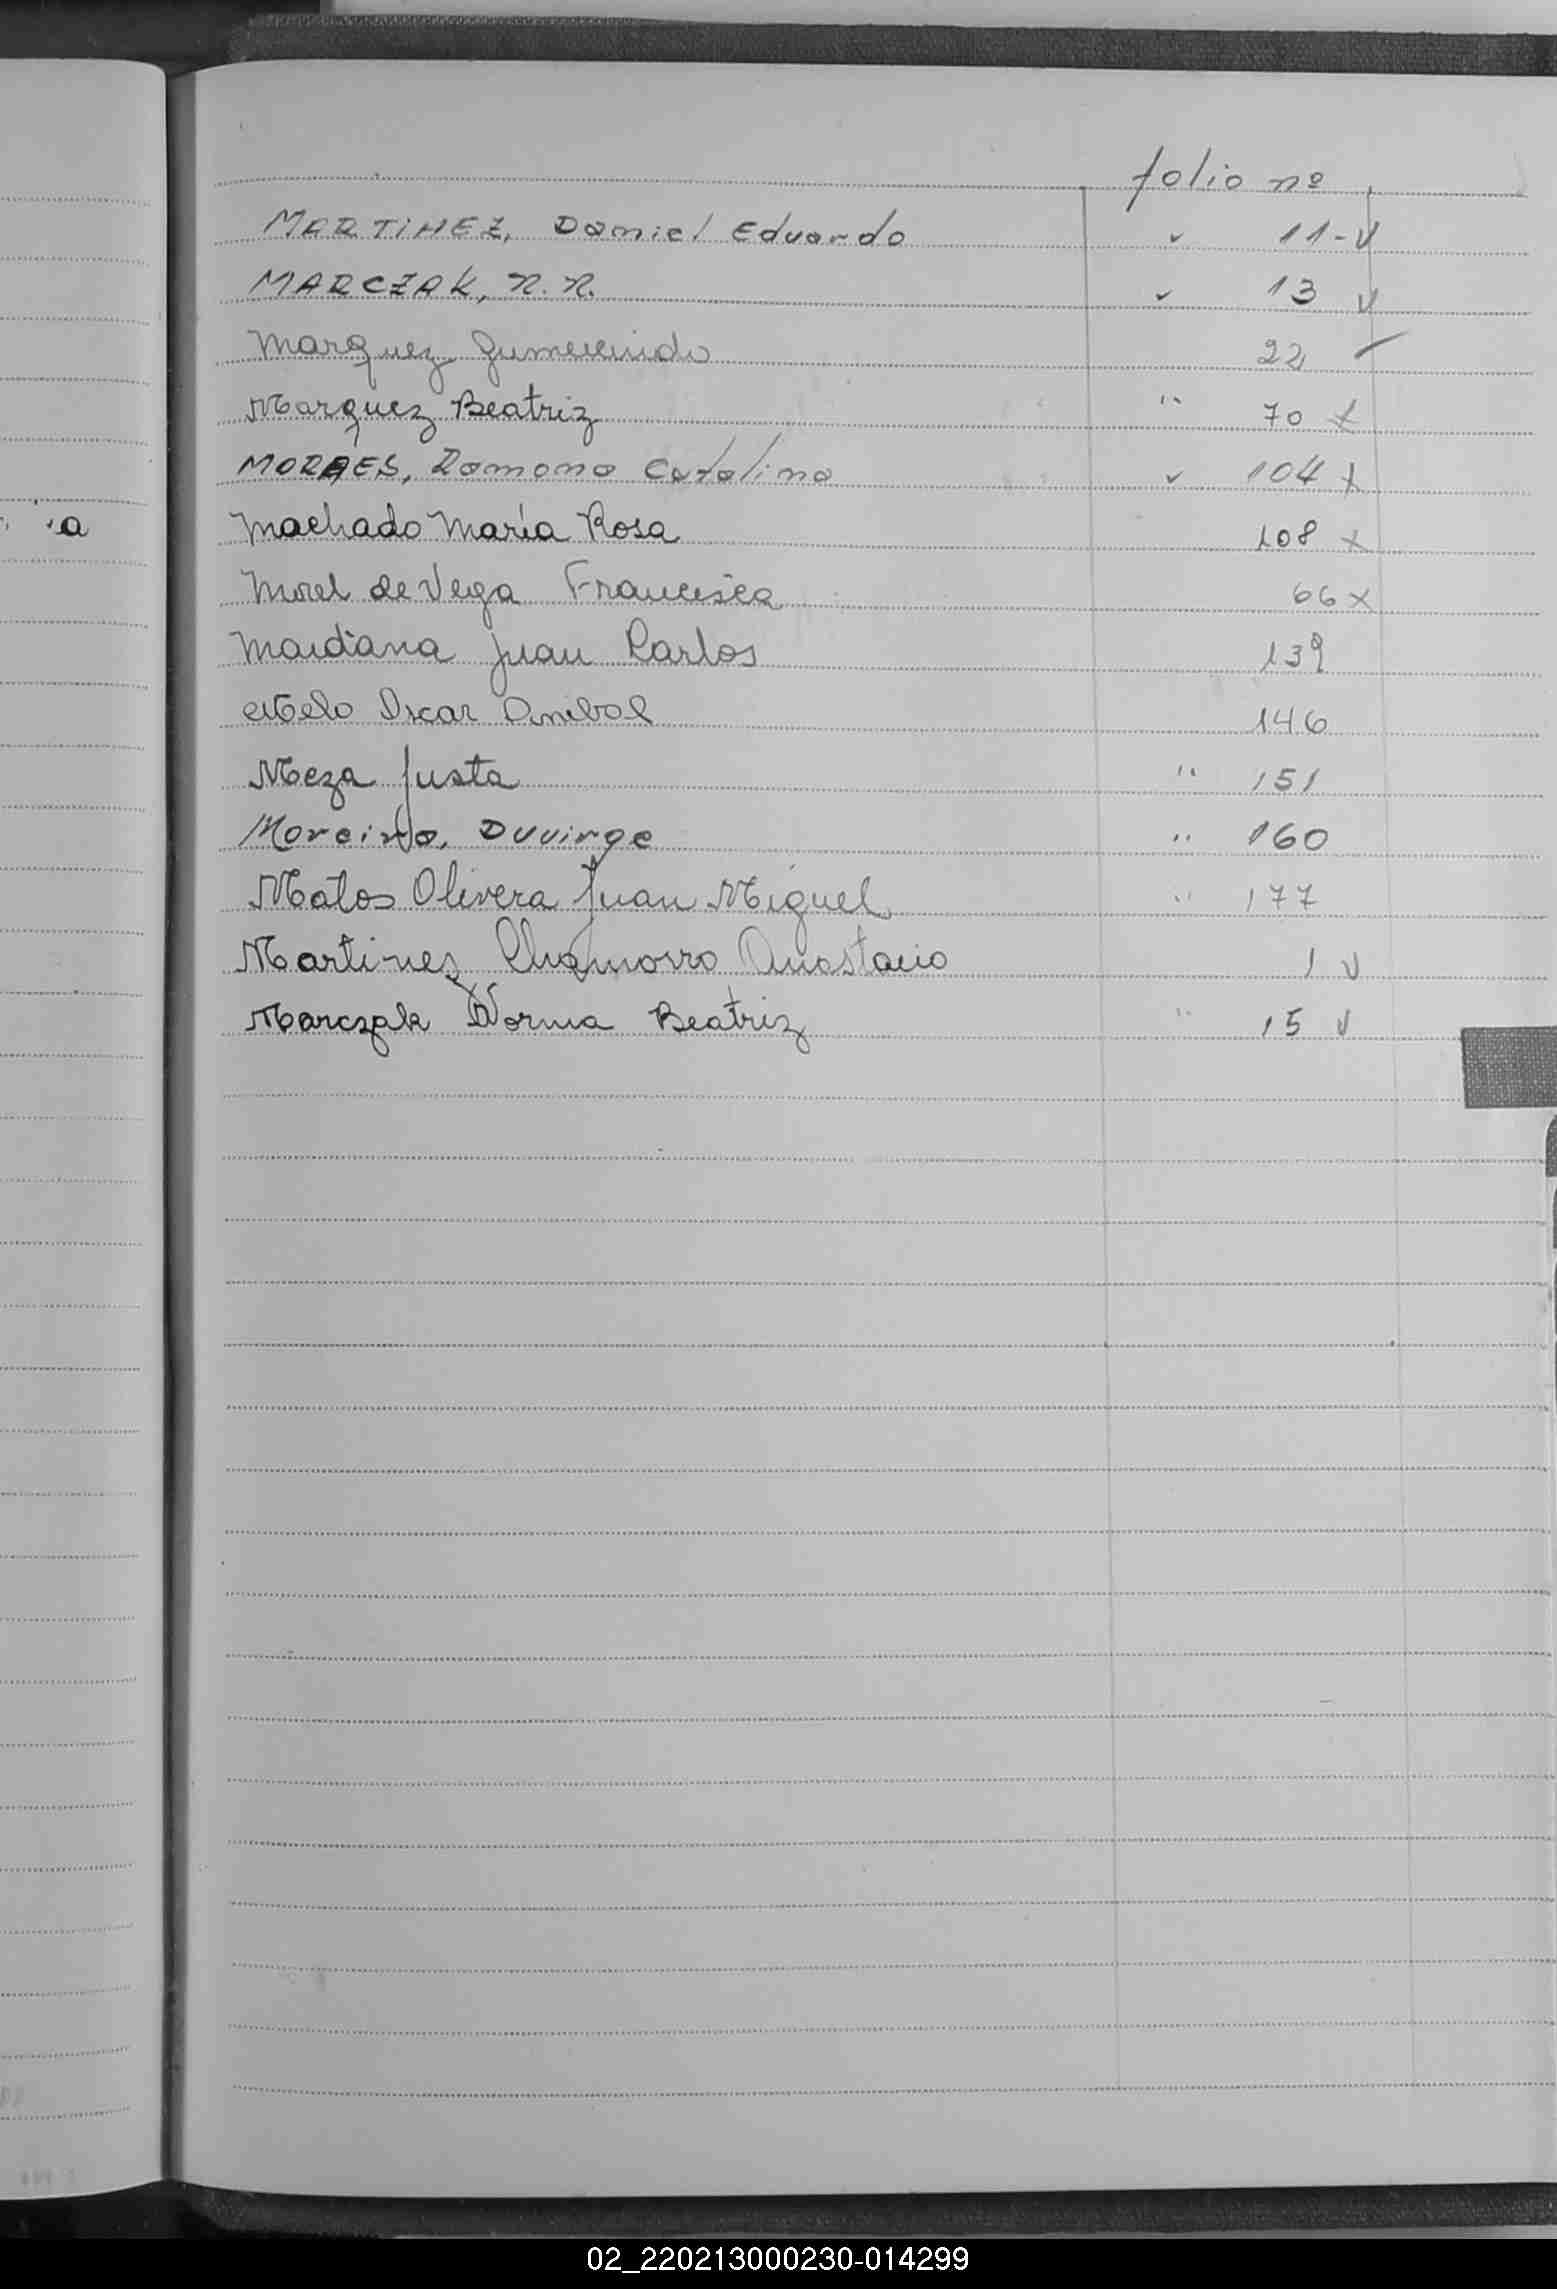 folio nº
MARTINEZ, Daniel Eduardo " 11 - v
MARCZAK, N.N. " 13 v
Marquez Gumercindo 22
Marquez Beatriz " 70 x
MORAES, Ramona Catalina " 104 x
Machado María Rosa 108 x
Morel de Vega Francisca 66 x
Maidana Juan Carlos 139
Melo Oscar Anibal 146
Meza Justa " 151
Moreira, Duvirge " 160
Matos Olivera Juan Miguel " 177
Martinez Chamorro Anastacio 1 v
Marczak Norma Beatriz " 15 v
02_220213000230-014299